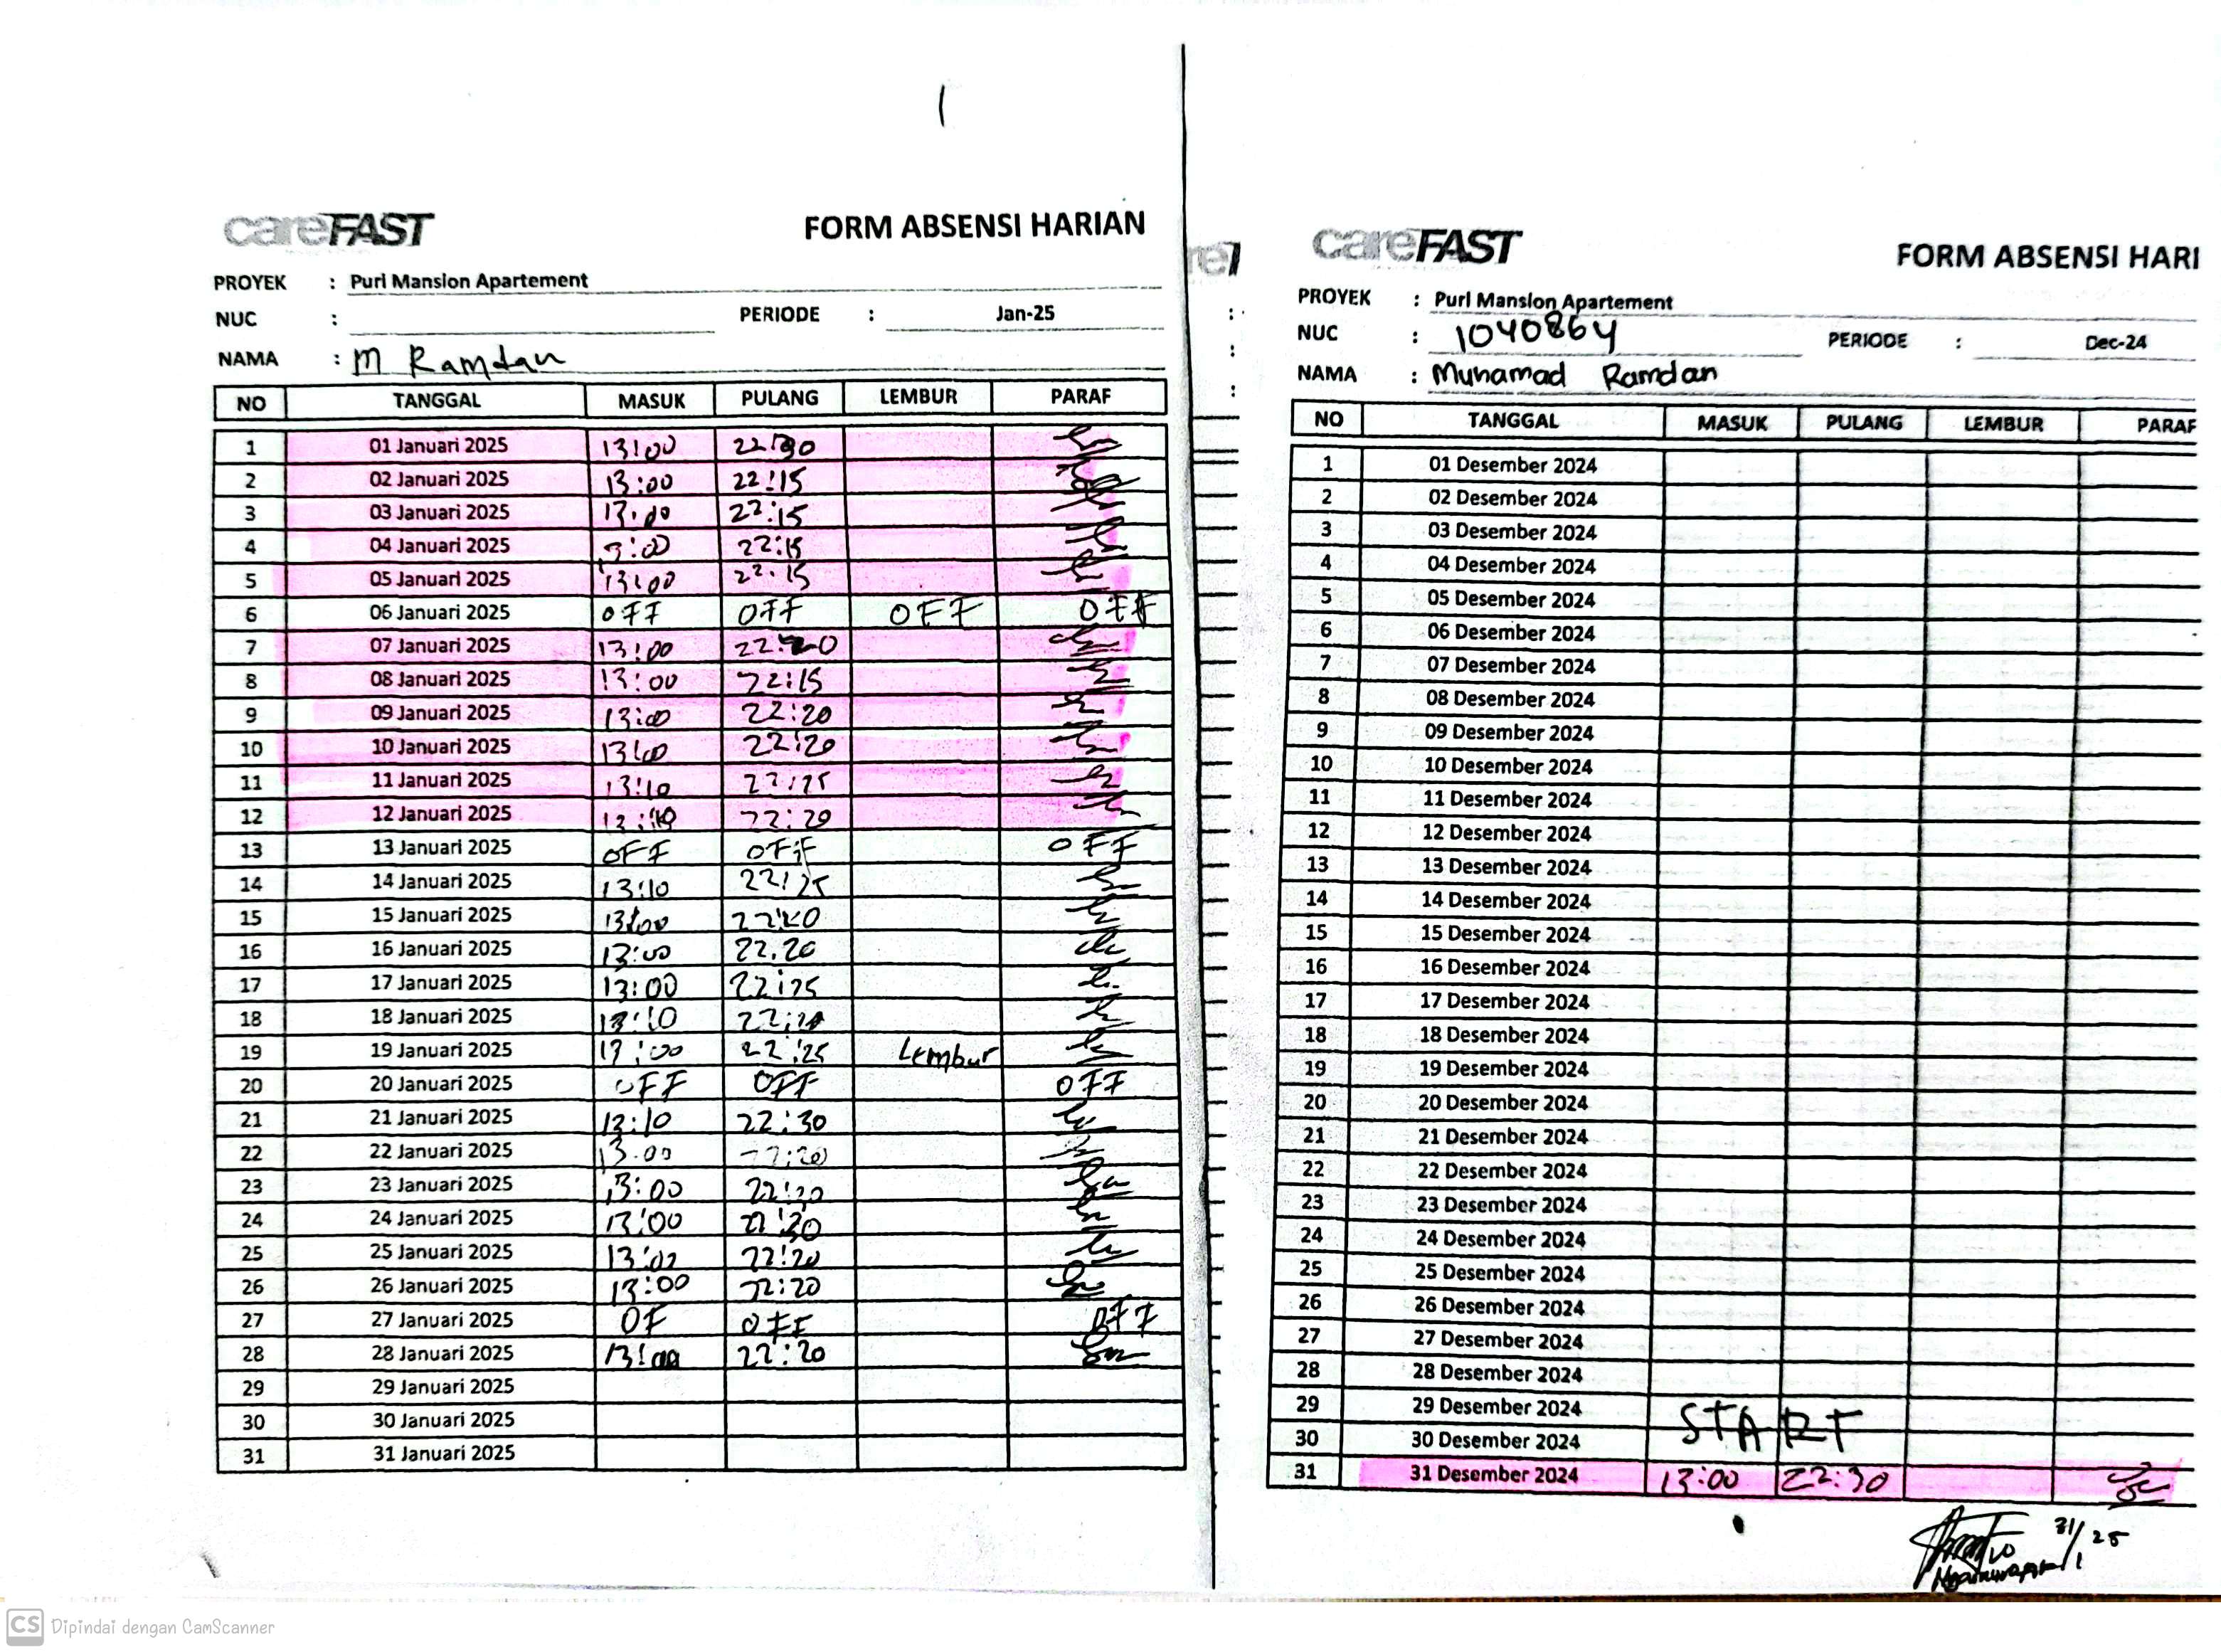 careFAST FORM ABSENSI HARIAN
PROYEK : Puri Mansion Apartement
NUC : PERIODE : Jan-25
NAMA : M Ramdan
NO TANGGAL MASUK PULANG LEMBUR PARAF
1 01 Januari 2025 13:00 22:30
2 02 Januari 2025 13:00 22:15
3 03 Januari 2025 13:00 22:15
4 04 Januari 2025 13:00 22:15
5 05 Januari 2025 13:00 22:15
6 06 Januari 2025 OFF OFF OFF OFF
7 07 Januari 2025 13:00 22:20
8 08 Januari 2025 13:00 22:15
9 09 Januari 2025 13:00 22:20
10 10 Januari 2025 13:00 22:20
11 11 Januari 2025 13:10 22:25
12 12 Januari 2025 13:10 22:20
13 13 Januari 2025 OFF OFF OFF
14 14 Januari 2025 13:10 22:25
15 15 Januari 2025 13:00 22:20
16 16 Januari 2025 13:00 22.20
17 17 Januari 2025 13:00 22:25
18 18 Januari 2025 13:10
19 19 Januari 2025 13:00 22:25 Lembur
20 20 Januari 2025 OFF OFF OFF
21 21 Januari 2025 13:10 22:30
22 22 Januari 2025 13.00 22:20
23 23 Januari 2025 13:00 22:20
24 24 Januari 2025 13:00
25 25 Januari 2025 22:20
26 26 Januari 2025 13:00 22:20
27 27 Januari 2025 OF OFF OFF
28 28 Januari 2025 13:00 22:20
29 29 Januari 2025
30 30 Januari 2025
31 31 Januari 2025
careFAST FORM ABSENSI HARI
PROYEK : Puri Mansion Apartement
NUC : 1040864 PERIODE : Dec-24
NAMA : Muhamad Ramdan
NO TANGGAL MASUK PULANG LEMBUR PARAF
1 01 Desember 2024
2 02 Desember 2024
3 03 Desember 2024
4 04 Desember 2024
5 05 Desember 2024
6 06 Desember 2024
7 07 Desember 2024
8 08 Desember 2024
9 09 Desember 2024
10 10 Desember 2024
11 11 Desember 2024
12 12 Desember 2024
13 13 Desember 2024
14 14 Desember 2024
15 15 Desember 2024
16 16 Desember 2024
17 17 Desember 2024
18 18 Desember 2024
19 19 Desember 2024
20 20 Desember 2024
21 21 Desember 2024
22 22 Desember 2024
23 23 Desember 2024
24 24 Desember 2024
25 25 Desember 2024
26 26 Desember 2024
27 27 Desember 2024
28 28 Desember 2024
29 29 Desember 2024 START
30 30 Desember 2024
31 31 Desember 2024 13:00 22:30
31/1 25
CS Dipindai dengan CamScanner